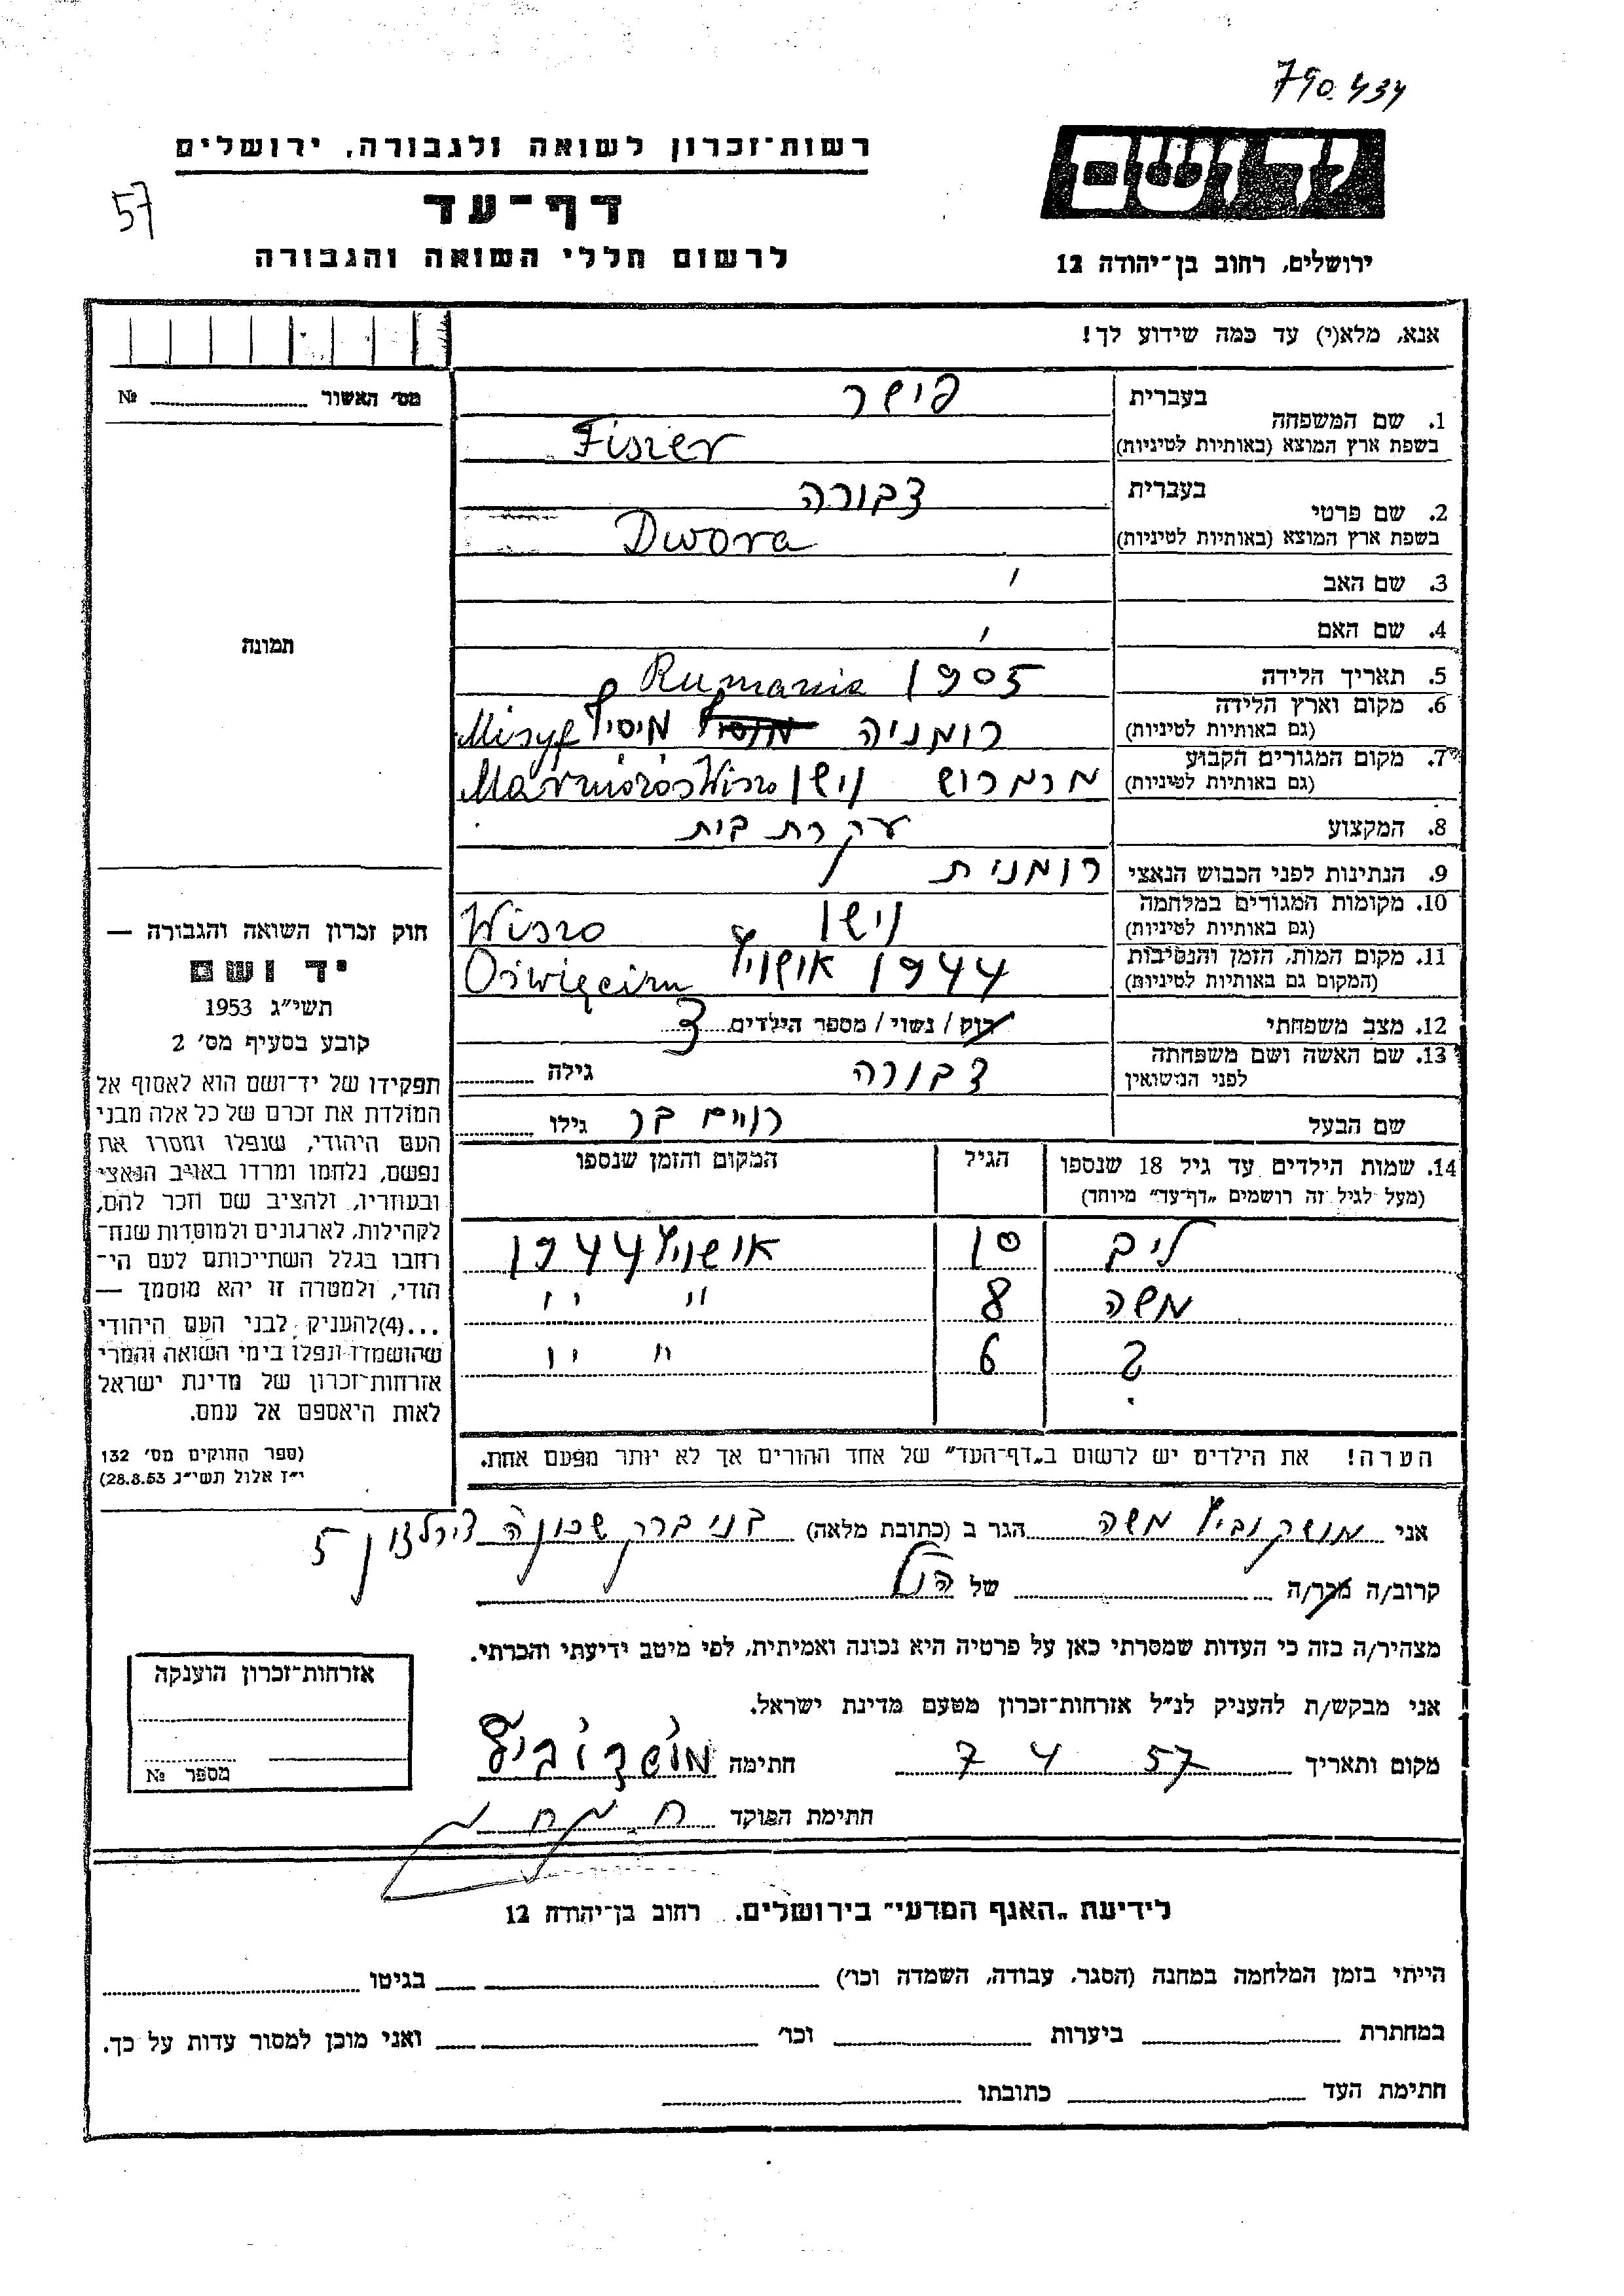 790.434
רשות־זכרון לשואה ולגבורה, ירושלים
57
דף־עד
לרשום חללי השואה והגבורה
יד ושם
ירושלים, רחוב בן־יהודה 12
אנא, מלא(י) עד כמה שידוע לך!
מס׳ האשור № 
בעברית פישר
1. שם המשפחה
בשפת ארץ המוצא (באותיות לטיניות) Fiszer
בעברית דבורה
2. שם פרטי
בשפת ארץ המוצא (באותיות לטיניות) Dwora
3. שם האב
4. שם האם
תמונה
5. תאריך הלידה 1905 Rumania
6. מקום וארץ הלידה רומניה מיסיף
(גם באותיות לטיניות)
7. מקום המגורים הקבוע מרמרוש וישו
(גם באותיות לטיניות)
8. המקצוע עקרת בית
9. הנתינות לפני הכבוש הנאצי רומנית
10. מקומות המגורים במלחמה וישו
(גם באותיות לטיניות)
11. מקום המות, הזמן והנסיבות 1944 אושויץ Oświęcim
(המקום גם באותיות לטיניות)
12. מצב משפחתי רוק / נשוי / מספר הילדים 3
13. שם האשה ושם משפחתה דבורה גילה
לפני הנישואין
שם הבעל גילו
14. שמות הילדים עד גיל 18 שנספו הגיל המקום והזמן שנספו
(מעל לגיל זה רושמים „דף־עד״ מיוחד)
ליב 10 אושויץ 1944
משה 8 " "
? 6 " "
הערה! את הילדים יש לרשום ב„דף־העד״ של אחד ההורים אך לא יותר מפעם אחת.
חוק זכרון השואה והגבורה —
יד ושם
תשי״ג 1953
קובע בסעיף מס׳ 2
תפקידו של יד־ושם הוא לאסוף אל
המולדת את זכרם של כל אלה מבני
העם היהודי, שנפלו ומסרו את
נפשם, נלחמו ומרדו באויב הנאצי
ובעוזריו, ולהציב שם וזכר להם,
לקהילות, לארגונים ולמוסדות שנח־
רחבו בגלל השתייכותם לעם הי־
הודי, ולמטרה זו יהא מוסמך —
...(4) להעניק לבני העם היהודי
שהושמדו ונפלו בימי השואה והמרי
אזרחות־זכרון של מדינת ישראל
לאות היאספם אל עמם.
(ספר החוקים מס׳ 132
י״ז אלול תשי״ג 28.8.53)
אני מושקוביץ משה הגר ב (כתובת מלאה) בני ברק שכונה 5
קרוב/ה מכר/ה של הנ״ל
מצהיר/ה בזה כי העדות שמסרתי כאן על פרטיה היא נכונה ואמיתית, לפי מיטב ידיעתי והכרתי.
אני מבקש/ת להעניק לנ״ל אזרחות־זכרון מטעם מדינת ישראל.
מקום ותאריך 7 4 57 חתימה מושקוביץ
חתימת הפוקד
אזרחות־זכרון הוענקה
מספר №
לידיעת „האגף המדעי״ בירושלים. רחוב בן־יהודה 12
הייתי בזמן המלחמה במחנה (הסגר, עבודה, השמדה וכו׳) בגיטו
במחתרת ביערות וכו׳ ואני מוכן למסור עדות על כך.
חתימת העד כתובתו